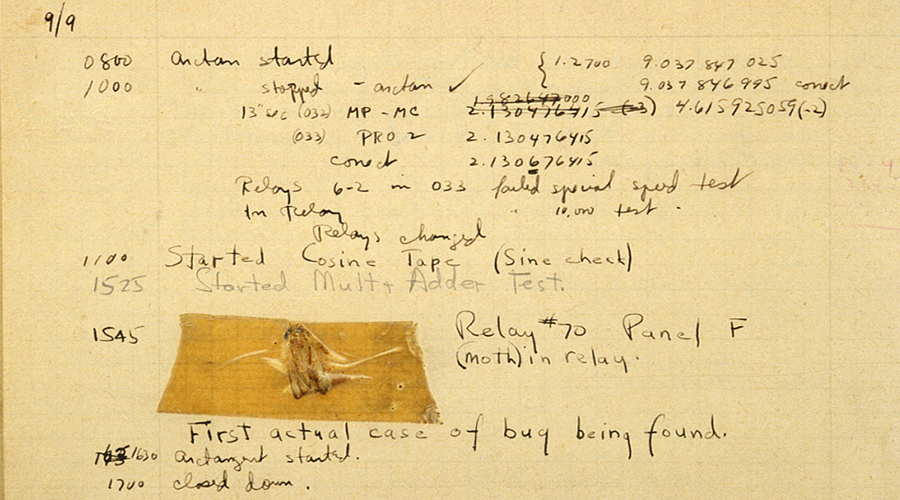 9/9
0800 arctan started { 1.2700 9.037 847 025
1000 " stopped - arctan ✓ 9.037 846 995 conect
13" sec (032) MP - MC 2.130476415 (-3) 4.615925059(-2)
(033) PRO 2 2.130476415
conect 2.130676415
Relays 6-2 in 033 failed special speed test
In Relay " 10,000 test .
Relays changed
1100 Started Cosine Tape (Sine check)
1525 Started Mult+ Adder Test.
1545 Relay #70 Panel F
(moth) in relay.
First actual case of bug being found.
1630 arctangent started.
1700 closed down .